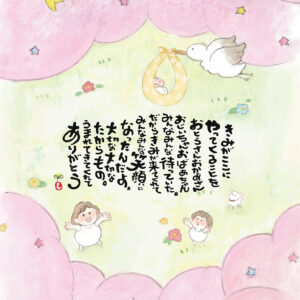 きみがここに
やってくることを
おとうさんおかあさん
おじいちゃんおばあちゃん
みんなみんな待っていた。
だからきみが来てくれて
みんなみんな笑顔に
なったんだよ。
大切な大切な
たからもの。
うまれてきてくれて
ありがとう